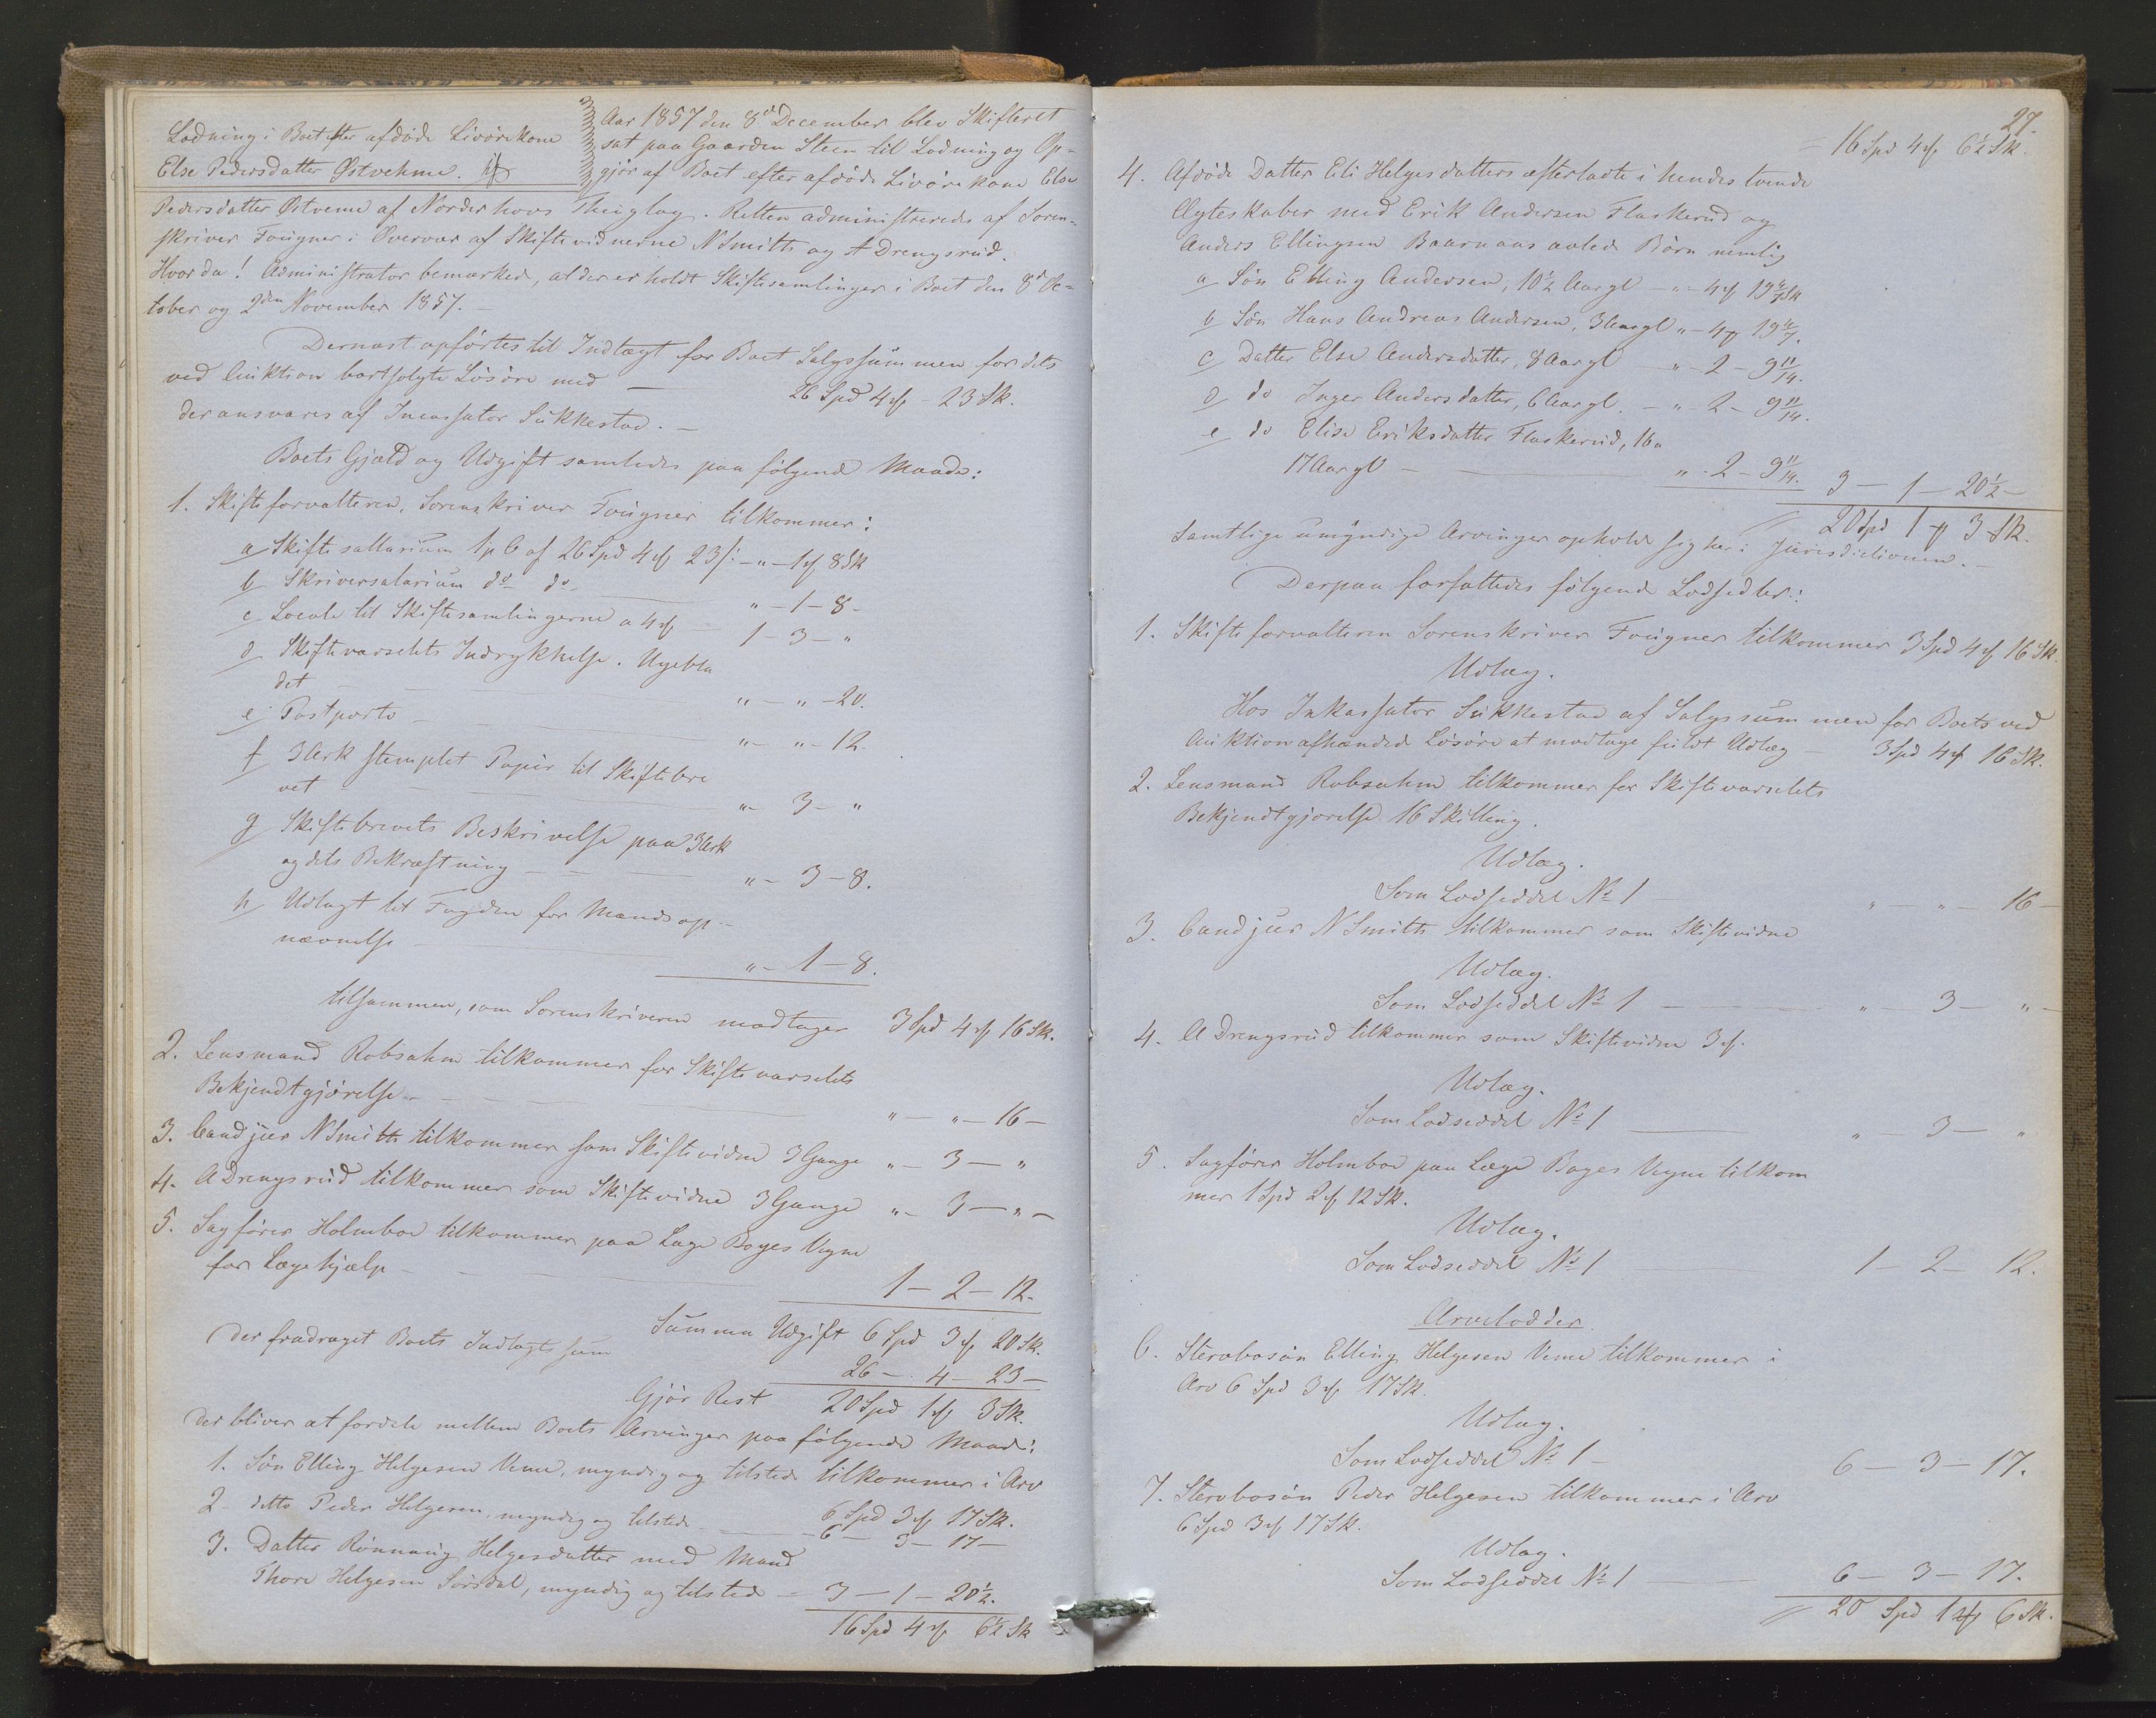 Lodning i Boet efter afdøde Livørekone
Else Pedersdatter Østvehme.
Aar 1857 den 8de December blev Skifteret
sat paa Gaarden Steen til Lodning og Op-
gjør af Boet efter afdøde Livørekone Else
Pedersdatter Østveme af Norderhovs Thinglag. Retten administreredes af Soren-
skriver Fougner i Overvær af Skiftevidnerne N Smith og A Drengsrud.
Hvorda! Administrator bemærkede, at der er holdt Skiftesamlinger i Boet den 8de Oc-
tober og 2den November 1857. –
Dernæst opførtes til Indtægt for Boet Salgssummen for dets
ved Auktion bortsolgte Løsøre med — 26 Spd 4 # – 23 Sk.
der ansvares af Incassator Sukkestad. –
Boets Gjæld og Udgift samledes paa følgende Maade:
1. Skifteforvalteren, Sorenskriver Fougner tilkommer:
a Skiftesallarium 1 pC af 26 Spd 4 # 23 s: – „ – 1 # 8 Sk
b Skriversalarium do do – „ – 1 – 8 –
c Locale til Skiftesamlingerne a 4 # – 1 – 3 – „
d Skiftevarselets Indrykkelse. Ugebla
det – „ – „ – 20.
e Postporto – „ – „ – 12.
f 3 Ark stemplet Papir til Skiftebre
vet – „ – 3 – „
g Skiftebrevets Beskrivelse paa 3 Ark
og dets Bekræftning – „ – 3 – 8.
h Udlagt til Fogden for Mandsop-
nævnelse – „ – 1 – 8.
tilsammen, som Sorenskriveren modtager 3 Spd 4 # 16 Sk.
2. Lensmand Robsahm tilkommer for Skiftevarselets
Bekjendtgjørelse – „ – „ – 16 –
3. Cand jur N Smith tilkommer som Skiftevidne 3 Gange „ – 3 – „
4. A Drengsrud tilkommer som Skiftevidne 3 Gange „ – 3 – „ –
5. Sagfører Holmboe tilkommer paa Læge Boyes Vegne
for Lægehjælp – 1 – 2 – 12.
Summa Udgift 6 Spd 3 # 20 Sk.
der fradraget Boets Indtægtssum 26 – 4 – 23 –
Gjør Rest 20 Spd 1 # 3 Sk.
der bliver at fordele mellem Boets Arvinger paa følgende Maade:
1. Søn Elling Helgesen Veme, myndig og tilstede tilkommer i Arv
6 Spd 3 # 17 Sk.
2. ditto Peder Helgesen, myndig og tilstede – 6 – 3 – 17 –
3. Datter Rønnaug Helgesdatter med Mand
Thore Helgesen Sørsdal, myndig og tilstede – 3 – 1 – 20½.
16 Spd 4 # 6½ Sk
27.
= 16 Spd 4 # 6½ Sk.
4. Afdøde Datter Eli Helgesdatters efterladte i hendes tvende
Ægteskaber med Erik Andersen Flaskerud og
Anders Ellingsen Baarnaas avlede Børn nemlig
a Søn Elling Andersen, 10½ Aar gl – „ – 4 # 19 4/7 Sk
b Søn Hans Andreas Andersen, 3 Aar gl „ – 4 # 19 4/7.
c Datter Else Andersdatter, 8 Aar gl – „ – 2 – 9 11/14.
d do Inger Andersdatter, 6 Aar gl. – „ – 2 – 9 11/14.
e do Elise Eriksdatter Flaskerud, 16 a
17 Aar gl – „ – 2 – 9 11/14. 3 – 1 – 20½ –
20 Spd 1 # 3 Sk.
Samtlige umyndige Arvinger opholde sig her i Jurisdictionen. –
Derpaa forfattedes følgende Lodsedler:
1. Skifteforvalteren Sorenskriver Fougner tilkommer 3 Spd 4 # 16 Sk.
Udlæg.
Hos Inkassator Sukkestad af Salgssummen for Boets ved
Auktion afhændede Løsøre at modtage fuldt Udlæg – 3 Spd 4 # 16 Sk.
2. Lensmand Robsahm tilkommer for Skiftevarselets
Bekjendtgjørelse 16 Skilling.
Udlæg.
Som Lodseddel No 1 – „ – „ – 16 –
3. Cand jur N Smith tilkommer som Skiftevidne
Udlæg.
Som Lodseddel No 1 – „ – 3 – „ –
4. A Drengsrud tilkommer som Skiftevidne 3 #.
Udlæg.
Som Lodseddel No 1 – „ – 3 – „
5. Sagfører Holmboe paa Læge Boyes Vegne tilkom
mer 1 Spd 2 # 12 Sk.
Udlæg.
Som Lodseddel No 1 – 1 – 2 – 12.
Arvelodder
6. Stervbosøn Elling Helgesen Veme tilkommer i
Arv 6 Spd 3 # 17 Sk.
Udlæg.
Som Lodseddel No 1 – 6 – 3 – 17.
7. Stervbosøn Peder Helgesen tilkommer i Arv
6 Spd 3 # 17 Sk.
Udlæg.
Som Lodseddel No 1 – 6 – 3 – 17.
20 Spd 1 # 6 Sk.